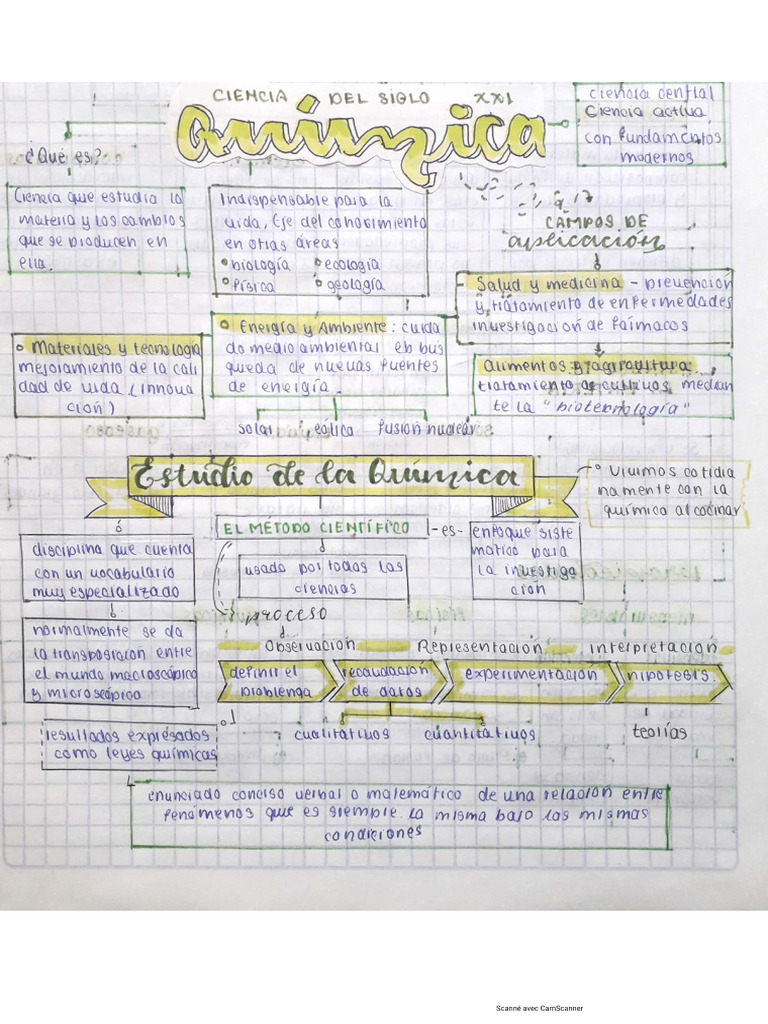 CIENCIA DEL SIGLO XXI
Química
ciencia central
Ciencia activa
con fundamentos
modernos
¿Qué es?
Ciencia que estudia la
materia y los cambios
que se producen en
ella.
Indispensable para la
vida, Eje del conocimiento
en otras áreas
• biología • ecología
• física • geología
CAMPOS DE
aplicación
Salud y medicina - prevención
y tratamiento de enfermedades
investigación de fármacos
• Energía y Ambiente: cuida
do medio ambiental en bus
queda de nuevas fuentes
de energía.
• Materiales y tecnología
mejoramiento de la cali
dad de vida (innova
ción)
Alimentos y agricultura
tratamiento de cultivos median
te la "biotecnología"
solar eólica fusion nuclear
Estudio de la Química
° Vivimos cotidia
namente con la
química al cocinar
EL MÉTODO CIENTÍFICO - es -
enfoque siste
mático para
la investiga
ción
disciplina que cuenta
con un vocabulario
muy especializado
usado por todas las
ciencias
proceso
normalmente se da
la transposición entre
el mundo macroscópico
y microscópico
Observación Representación interpretación
definir el
problenga
recaudación
de datos
experimentación
hipótesis
cualitativos cuantitativos
teorías
resultados expresados
como leyes químicas
enunciado conciso verbal o matemático de una relación entre
fenómenos que es siempre la misma bajo las mismas
condiciones
Scanné avec CamScanner